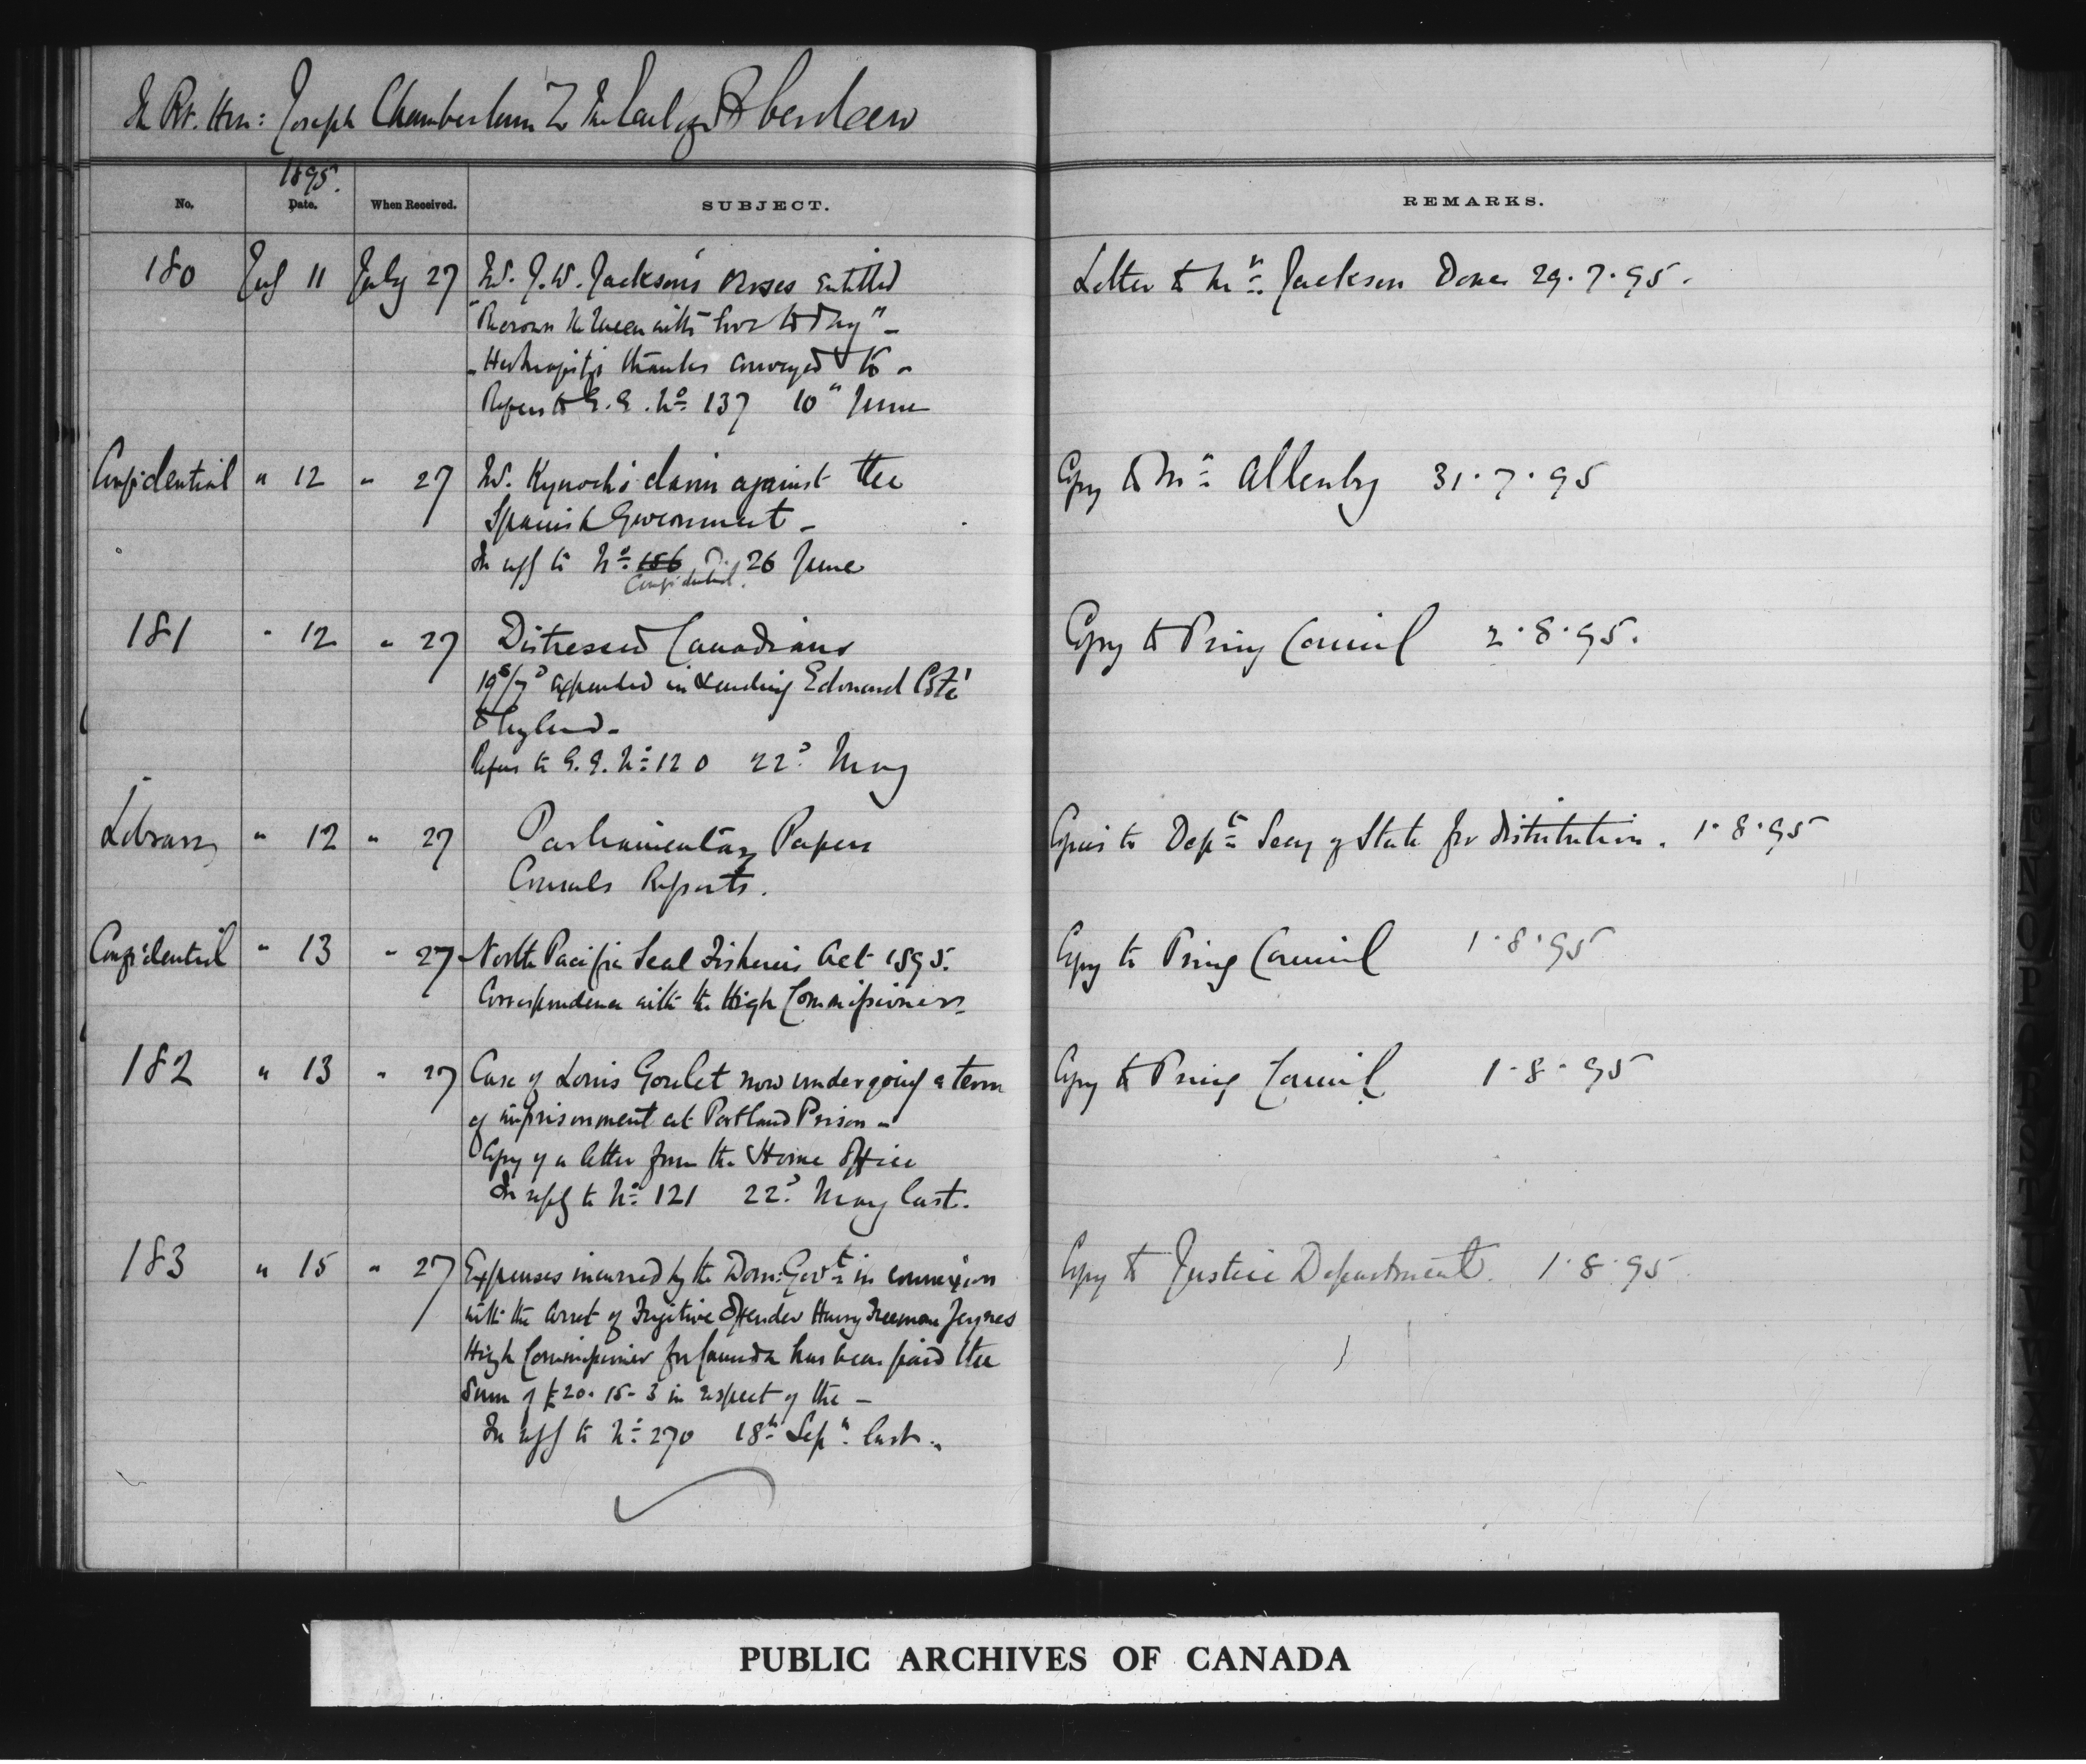 The Rt. Hon: Joseph Chamberlain To The Earl of Aberdeen
1895.
No. Date. When Received. SUBJECT. REMARKS.
180 July 11 July 27 Mr. J. W. Jackson's Verses entitled Letter to Mr. Jackson Done 29.7.95.
the Queen with love to day" -
- Her Majesty's thanks conveyed to -
Refers to G.G. No. 137 10" June
Confidential " 12 " 27 Mr. Kynoch's claim against the Copy to Mr. Allenby 31.7.95
Spanish Government -
In reply to No. 156 D. 26 June
Confidential.
181 " 12 " 27 Distressed Canadians Copy to Privy Council 2.8.95.
19s/7d expended in sending Edouard Coté
to England -
Refers to G.G. No. 120 22d May
Library " 12 " 27 Parliamentary Papers Copies to Dept. Secy of State for distribution. 1.8.95
Consuls Reports.
Confidential " 13 " 27 North Pacific Seal Fisheries Act 1895. Copy to Privy Council 1.8.95
Correspondence with the High Commissioner -
182 " 13 " 27 Case of Louis Goulet now undergoing a term Copy to Privy Council 1.8.95
of imprisonment at Portland Prison -
Copy of a letter from the Home Office
In reply to No. 121 22d May last.
183 " 15 " 27 Expenses incurred by the Dom: Govt. in connexion Copy to Justice Department. 1.8.95
with the arrest of Fugitive Offender Harry Freeman Jeynes
High Commissioner for Canada has been paid the
Sum of £20-15-3 in respect of the -
In reply to No. 270 18th Sepr. last -
PUBLIC ARCHIVES OF CANADA